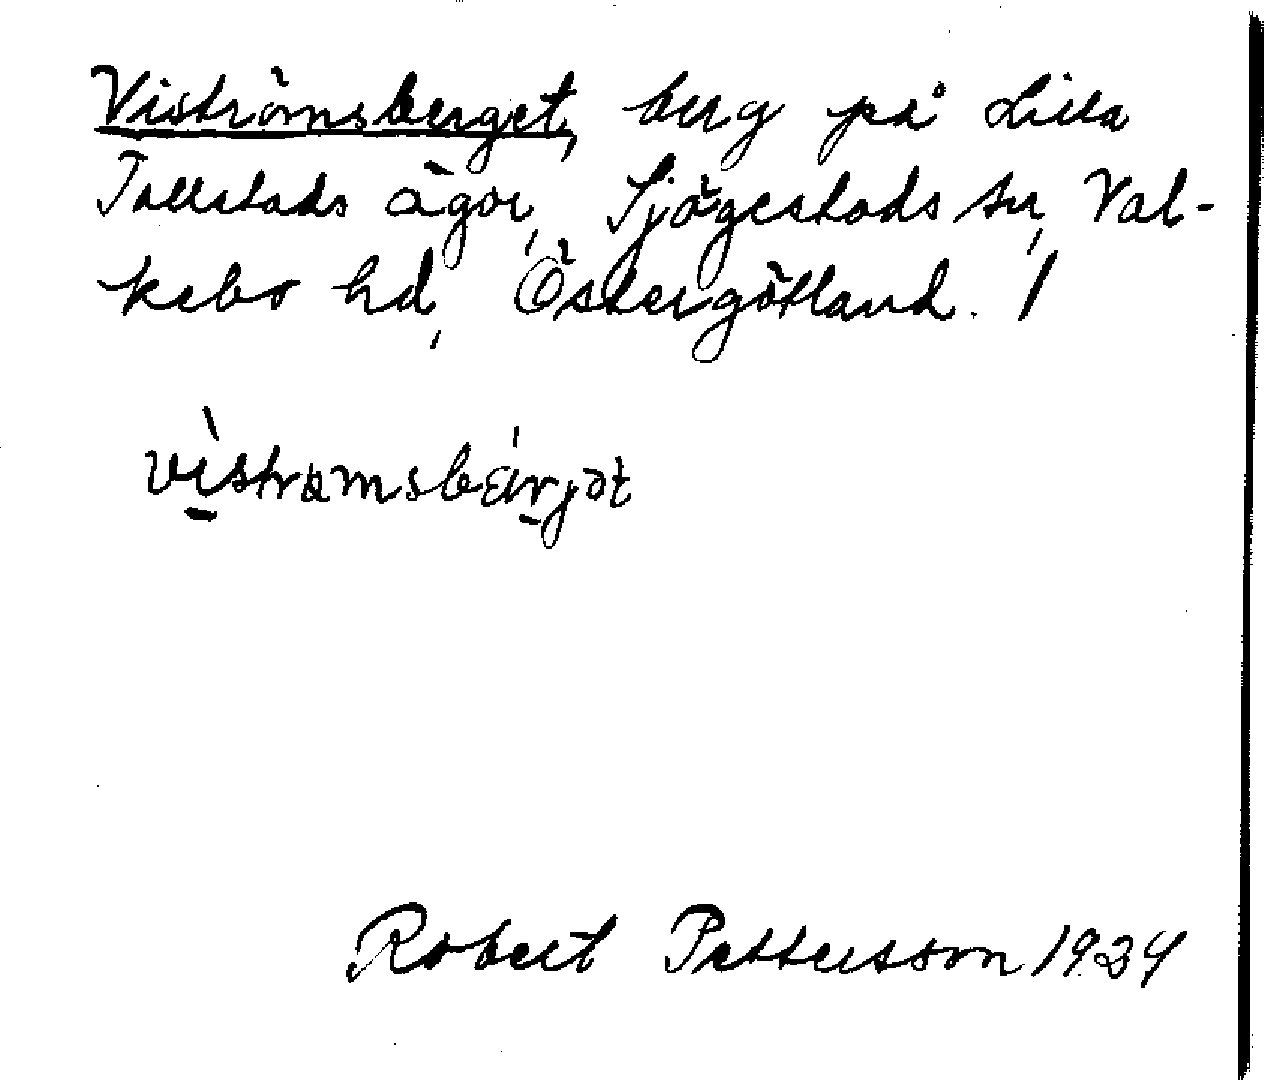 Viströmsberget, berg på Lilla
Tollstads ägor, Sjögestads sn, Val-
kebo hd, Östergötland. /
vìstrɑmsbǽrjət
Robert Pettersson 1934